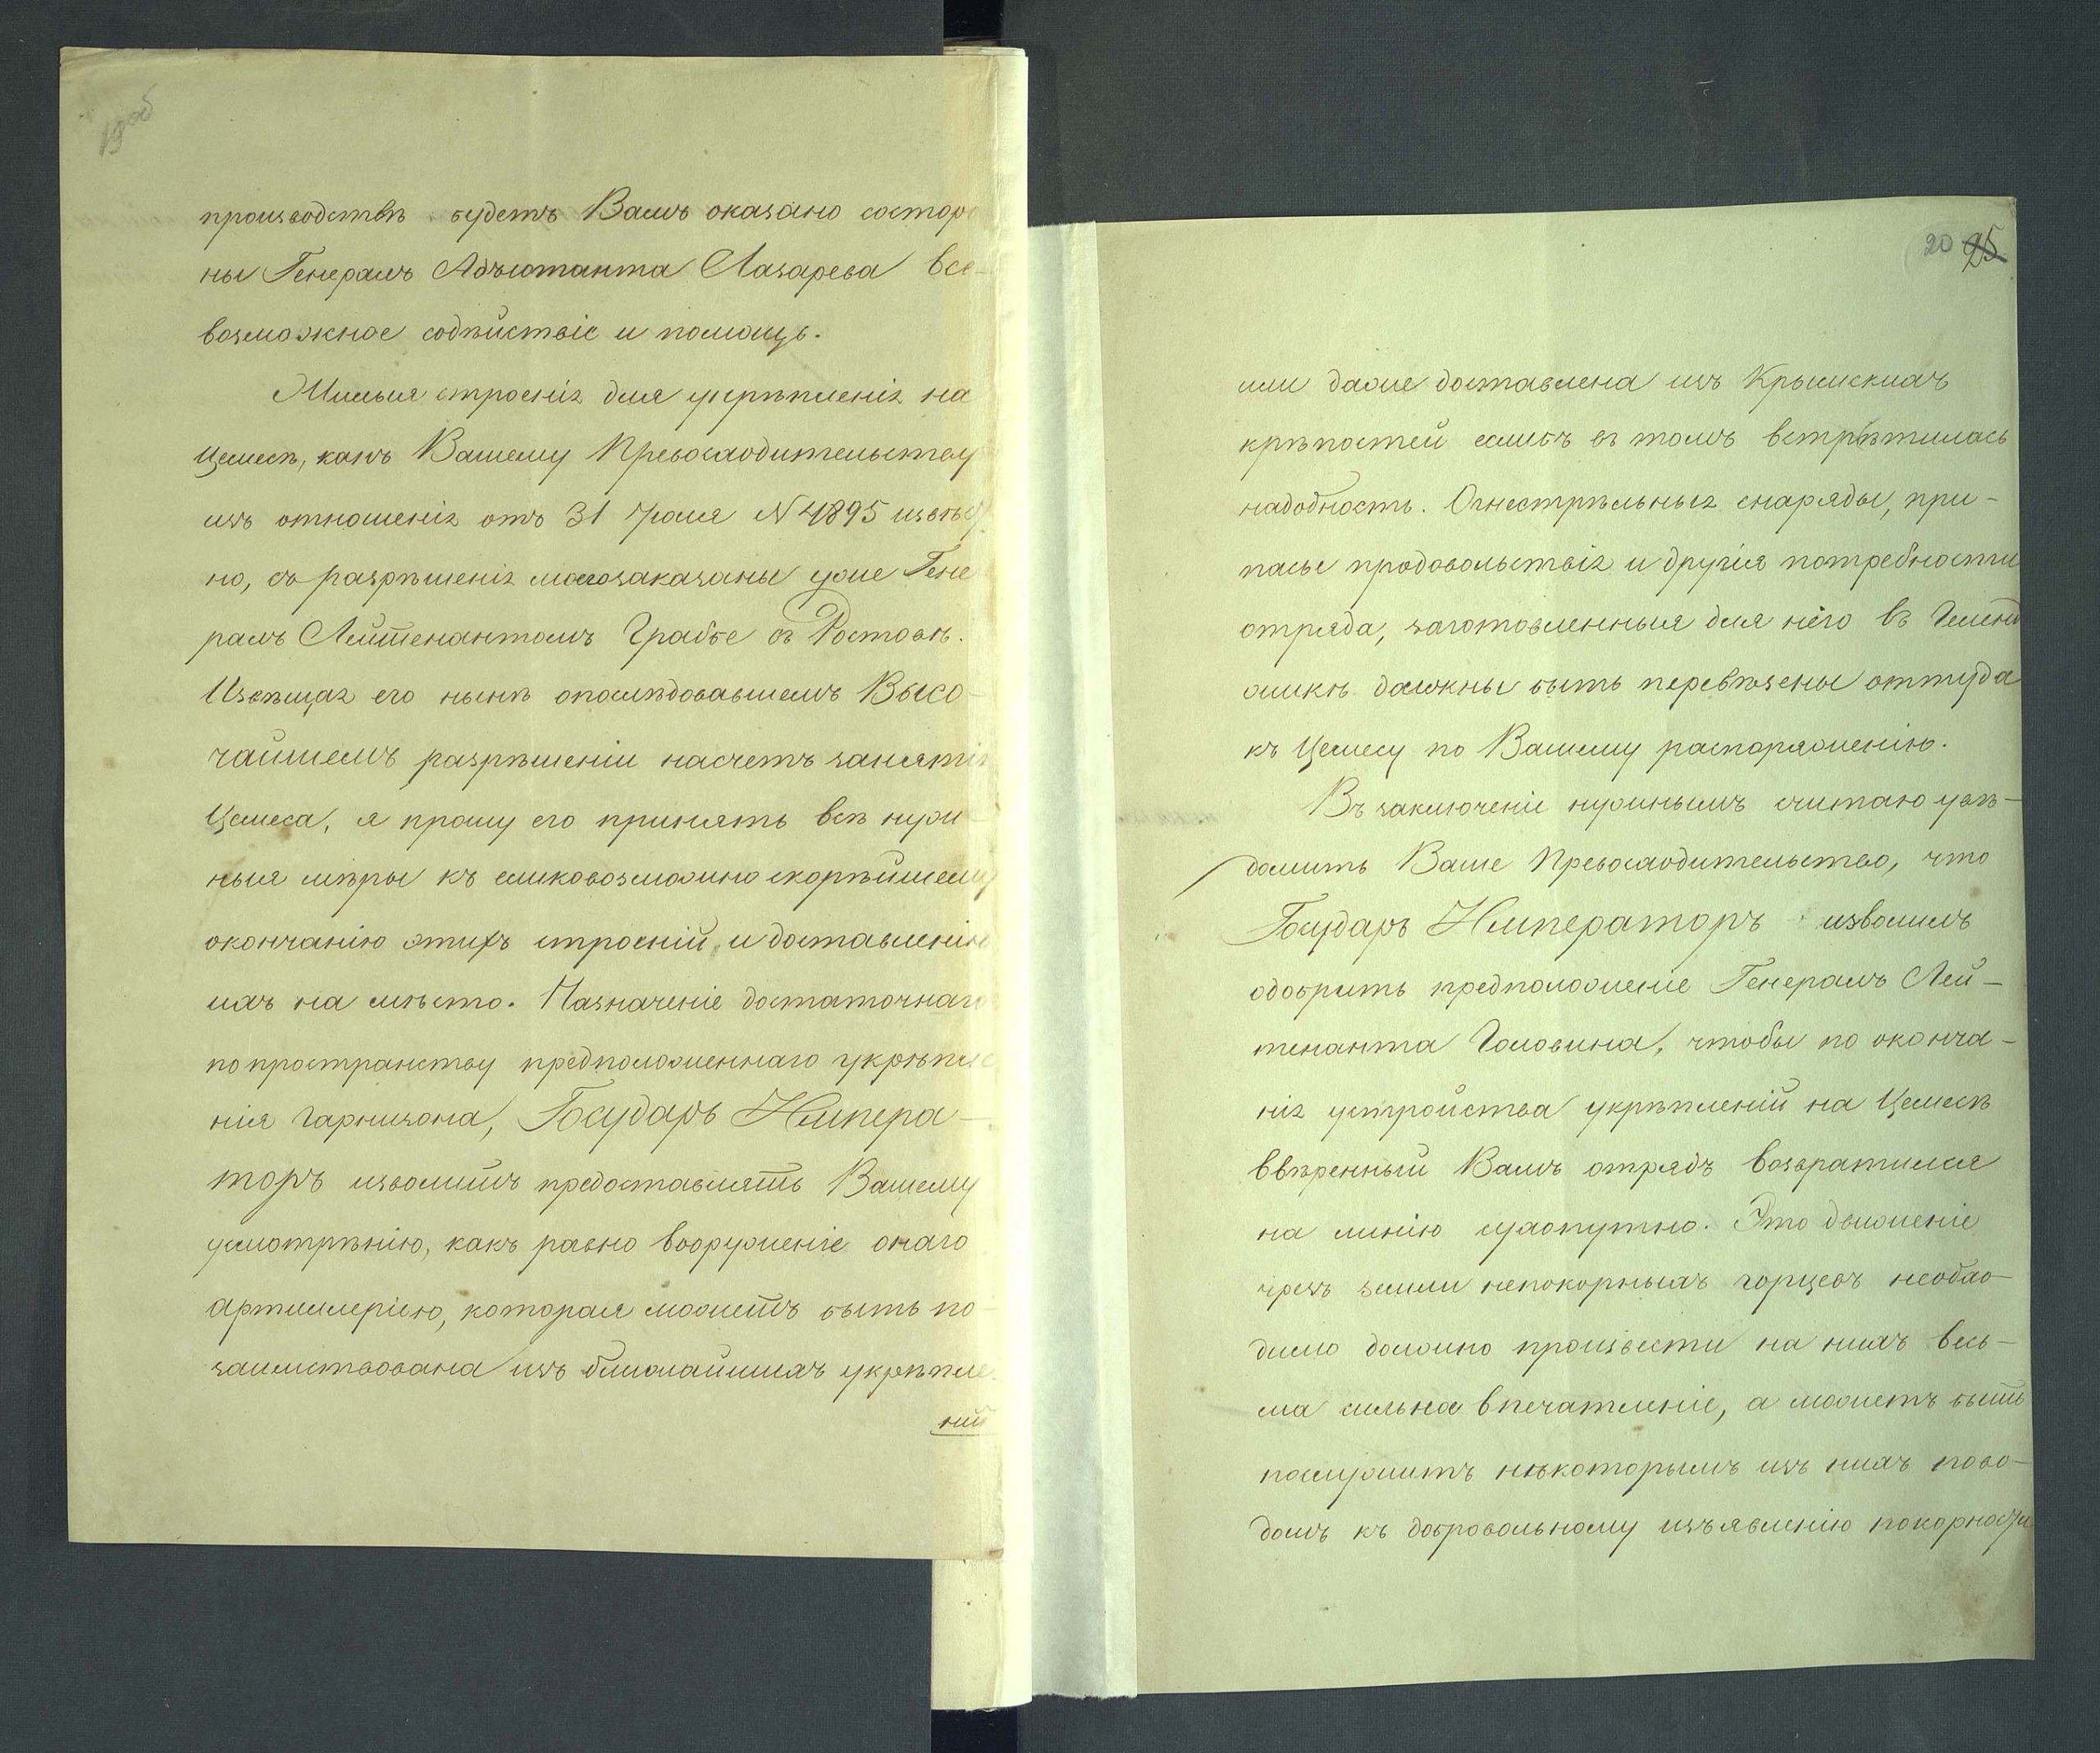 19об
производствѣ будетъ Вамъ оказано состоро
ны Генералъ Адъютанта Лазарева все-
возможное содѣйствіе и помощь.
Жилыя строенія для укрѣпленія на
Цемесѣ, какъ Вашему Превосходительству
изъ отношенія отъ 31 Мая N 4895 извѣст
но, съ разрѣшенія моего заказаны уже Гене
ралъ Лейтенантомъ Граббе въ Ростовѣ.
Извѣщая его нынѣ опослѣдовавшемъ Высо-
чайшемъ разрѣшеніи насчетъ занятія
Цемеса, я прошу его принять всѣ нуж-
ныя мѣры къ скиковозможно скорѣйшему
окончанію этихъ строеній и доставленію
ихъ на мѣсто. Назначеніе достаточнаго
по пространству предположеннаго укрѣпле
нія гарнизона, Государь Импера-
торъ изволитъ предоставлять Вашему
усмотрѣнію, какъ равно вооруженіе онаго
артиллеріею, которая можетъ быть по-
заимствована изъ ближайшихъ укрѣпле-
ній
20 25
или даже доставлена изъ Крымскихъ
крѣпостей еслибъ въ томъ встрѣтилась
надобность. Огнестрѣльныя снаряды, при-
пасы продовольствія и другія потребности
отряда, заготовленныя для него въ Гелен
джикѣ должны быть перевѣзены оттуда
къ Цемесу по Вашему распоряженію.
Въ заключеніе нужнымъ считаю увѣ-
домить Ваше Превосходительство, что
Государь Императоръ изволилъ
одобрить предположеніе Генералъ Лей-
тенанта Головина, чтобы по оконча-
нія устройства укрѣпленій на Цемесѣ
ввѣренный Вамъ отрядъ возвратился
на линію сухопутно. Это движеніе
чрезъ земли непокорныхъ горцевъ необхо-
димо должно произвести на нихъ весь-
ма сильное впечатленіе, а можетъ быть
послужитъ нѣкоторымъ изъ нихъ пово-
домъ къ добровольному изъявленію покорности